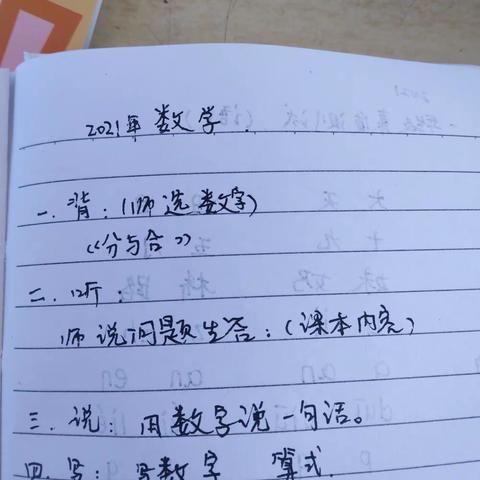 2021年 数学
一.背：(师选数字)
《分与合》
二.听：
师说问题生答：(课本内容)
三.说：用数字说一句话。
四.写：写数字 算式